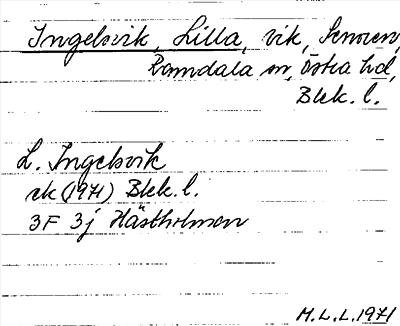 Ingelsvik, Lilla, vik, Senoren,
Ramdala sn, Östra hd,
Blek. l.
L. Ingelsvik
ek (1971) Blek. l.
3F 3j Hästholmen
M.L.L. 1971